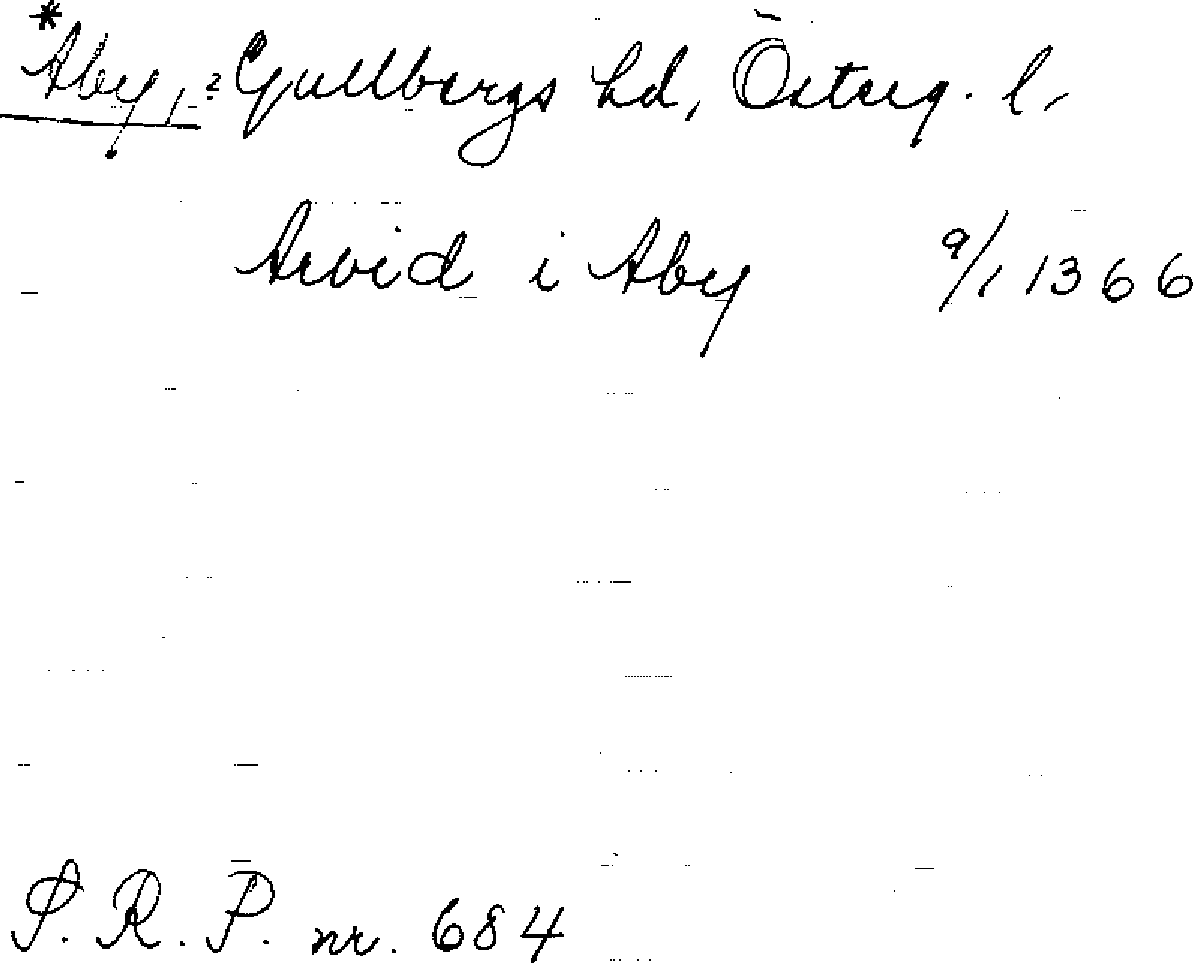 *Aby, ? Gullbergs hd, Österg. l.
Arvid i Aby 9/1 1366
S. R. P. nr. 684